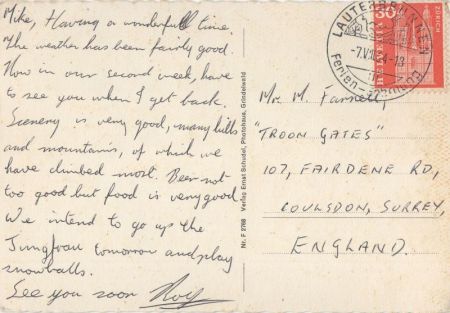 Mike, Having a wonderful time.
The weather has been fairly good.
Now in our second week, have
to see you when I get back.
Scenery is very good, many hills
and mountains, of which we
have climbed most. Beer not
too good but food is very good.
We intend to go up the
Jungfrau tomorrow and play
snowballs.
See you soon Roy
Nr. F 2768 Verlag Ernst Schudel, Photohaus, Grindelwald
30
HELVETIA
ZÜRICH
LAUTERBRUNNEN
Mr. M. Farnell,
"TROON GATES"
107, FAIRDENE RD,
COULSDON, SURREY,
ENGLAND.